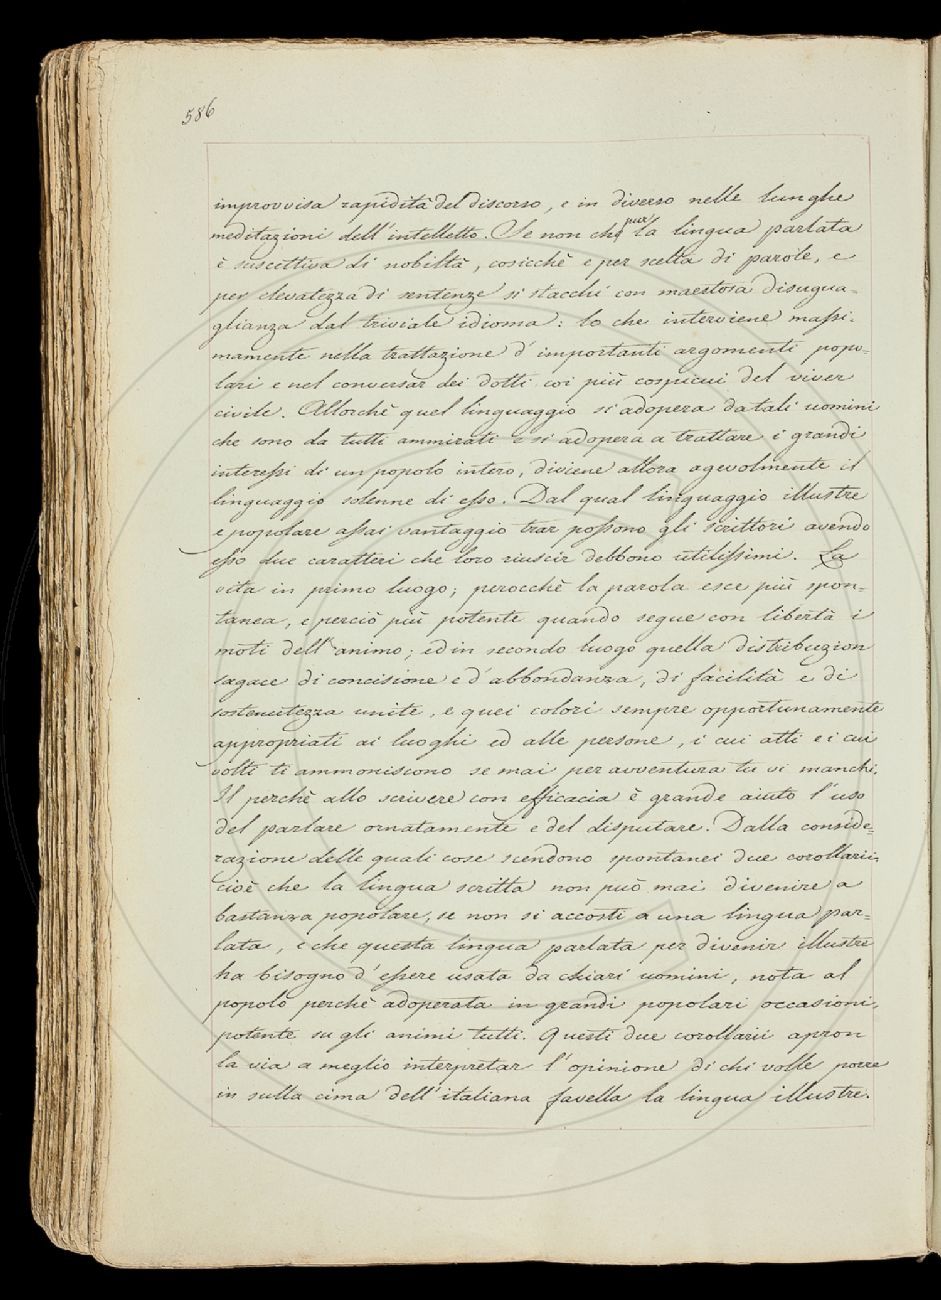 586
improvvisa rapidità del discorso, e in diverso nelle lunghe
meditazioni dell'intelletto. Se non che pur la lingua parlata
è suscettiva di nobiltà, cosicchè e per scelta di parole, e
per elevatezza di sentenze si stacchi con maestosa disugua-
glianza dal triviale idioma: lo che interviene massi-
mamente nella trattazione d'importanti argomenti popo-
lari e nel conversar dei dotti coi più cospicui del viver
civile. Allorchè quel linguaggio si adopera da tali uomini
che sono da tutti ammirati e si adopera a trattare i grandi
interessi di un popolo intero, diviene allora agevolmente il
linguaggio solenne di esso. Dal qual linguaggio illustre
e popolare assai vantaggio trar possono gli scrittori avendo
esso due caratteri che loro riuscir debbono utilissimi. La
vita in primo luogo; perocchè la parola esce più spon-
tanea, e perciò più potente quando segue con libertà i
moti dell'animo; ed in secondo luogo quella distribuzion
sagace di concisione e d'abbondanza, di facilità e di
sostenutezza unite, e quei colori sempre opportunamente
appropriati ai luoghi ed alle persone, i cui atti e i cui
volti ti ammoniscono se mai per avventura tu vi manchi.
Il perchè allo scrivere con efficacia è grande aiuto l'uso
del parlare ornatamente e del disputare. Dalla conside-
razione delle quali cose scendono spontanei due corollarii,
cioè che la lingua scritta non può mai divenire a
bastanza popolare, se non si accosti a una lingua par-
lata, e che questa lingua parlata per divenir illustre
ha bisogno d'essere usata da chiari uomini, nota al
popolo perchè adoperata in grandi popolari occasioni,
potente su gli animi tutti. Questi due corollarii apron
la via a meglio interpretar l'opinione di chi volle porre
in sulla cima dell'italiana favella la lingua illustre.